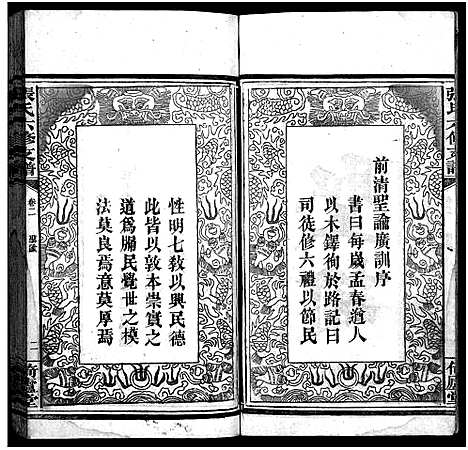 前清聖諭廣訓序
書曰每歲孟春遒人
以木鐸徇於路記曰
司徒修六禮以節民
性明七敎以興民德
此皆以敦本崇實之
道爲牖民覺世之模
法莫良焉意莫厚焉
張氏六修支譜
卷二
二